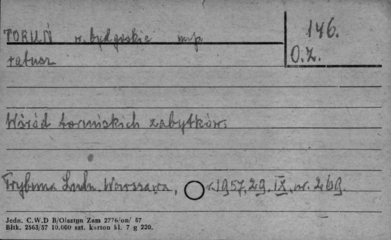 TORUŃ w. bydgoskie m-p
146.
ratusz
O.Z.
Wśród toruńskich zabytków.
Trybuna Ludu. Warszawa, r. 1957, 29. IX, nr. 269.
Jedn. C.W.D B/Olsztyn Zam 2776/on/ 57
Bltk. 2563/57 10,000 szt. karton kl. 7 g 220.